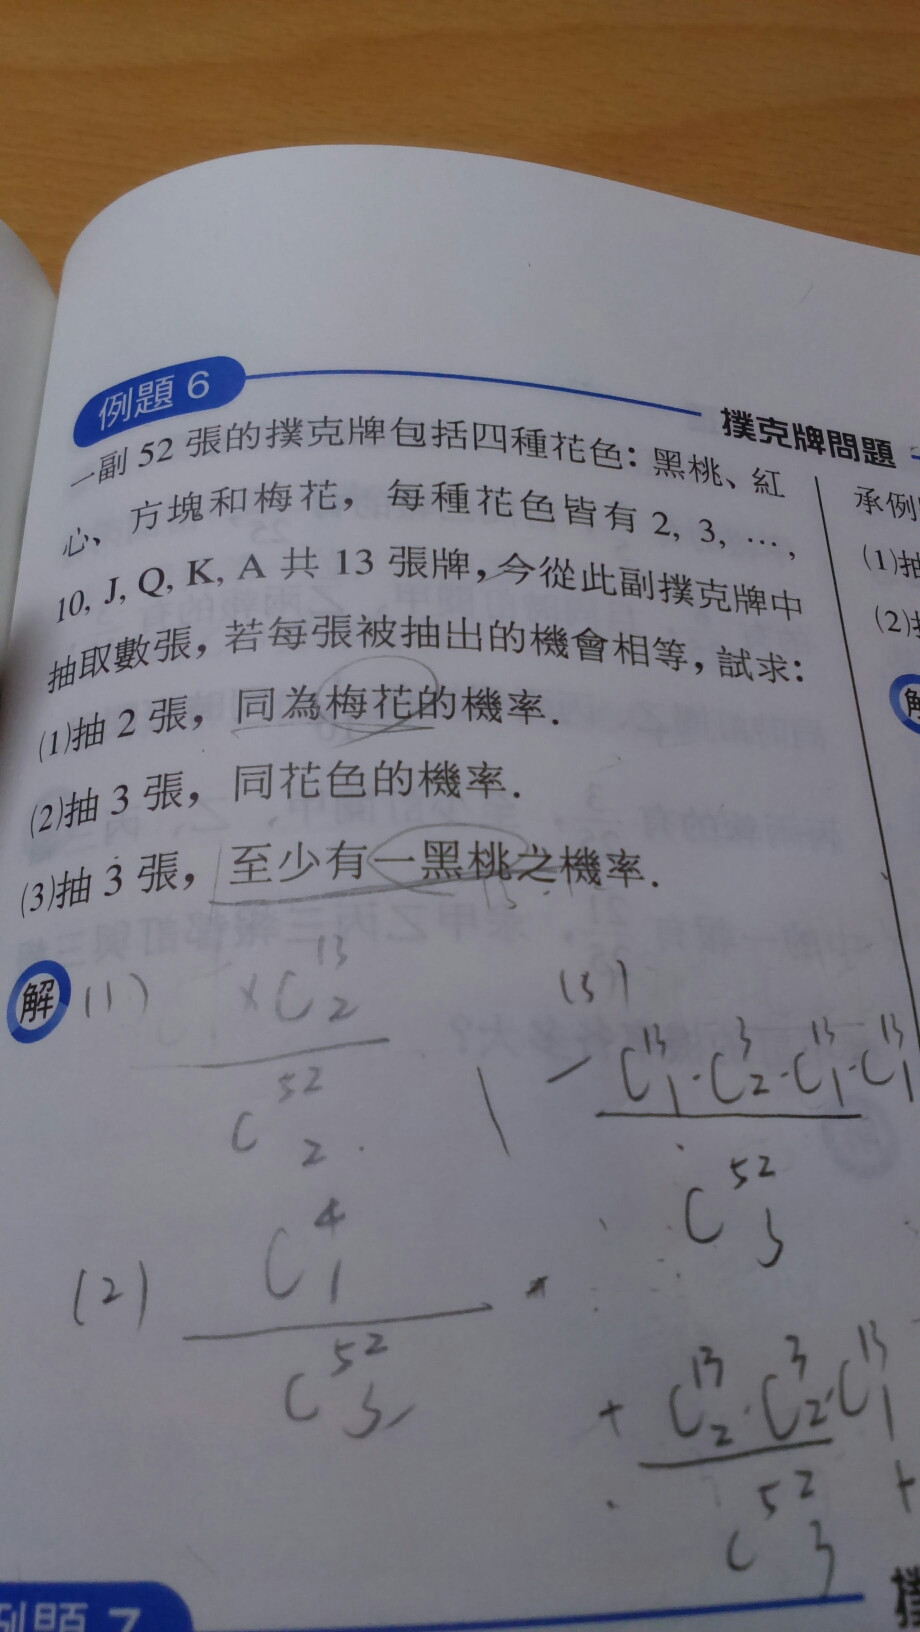 例題 6
撲克牌問題
一副 52 張的撲克牌包括四種花色：黑桃、紅
心、方塊和梅花，每種花色皆有 2, 3, …,
10, J, Q, K, A 共 13 張牌，今從此副撲克牌中
抽取數張，若每張被抽出的機會相等，試求：
(1)抽 2 張，同為梅花的機率.
(2)抽 3 張，同花色的機率.
(3)抽 3 張，至少有一黑桃之機率.
承例
(1)抽
(2)
解
解
(1) × C 13 2
C 52 2
(2) C 4 1
C 52 3
(3)
1 − C 13 1 · C 3 2 · C 13 1 · C 13 1
C 52 3
+ C 13 2 · C 3 2 · C 13 1
C 52 3
+
例題 7